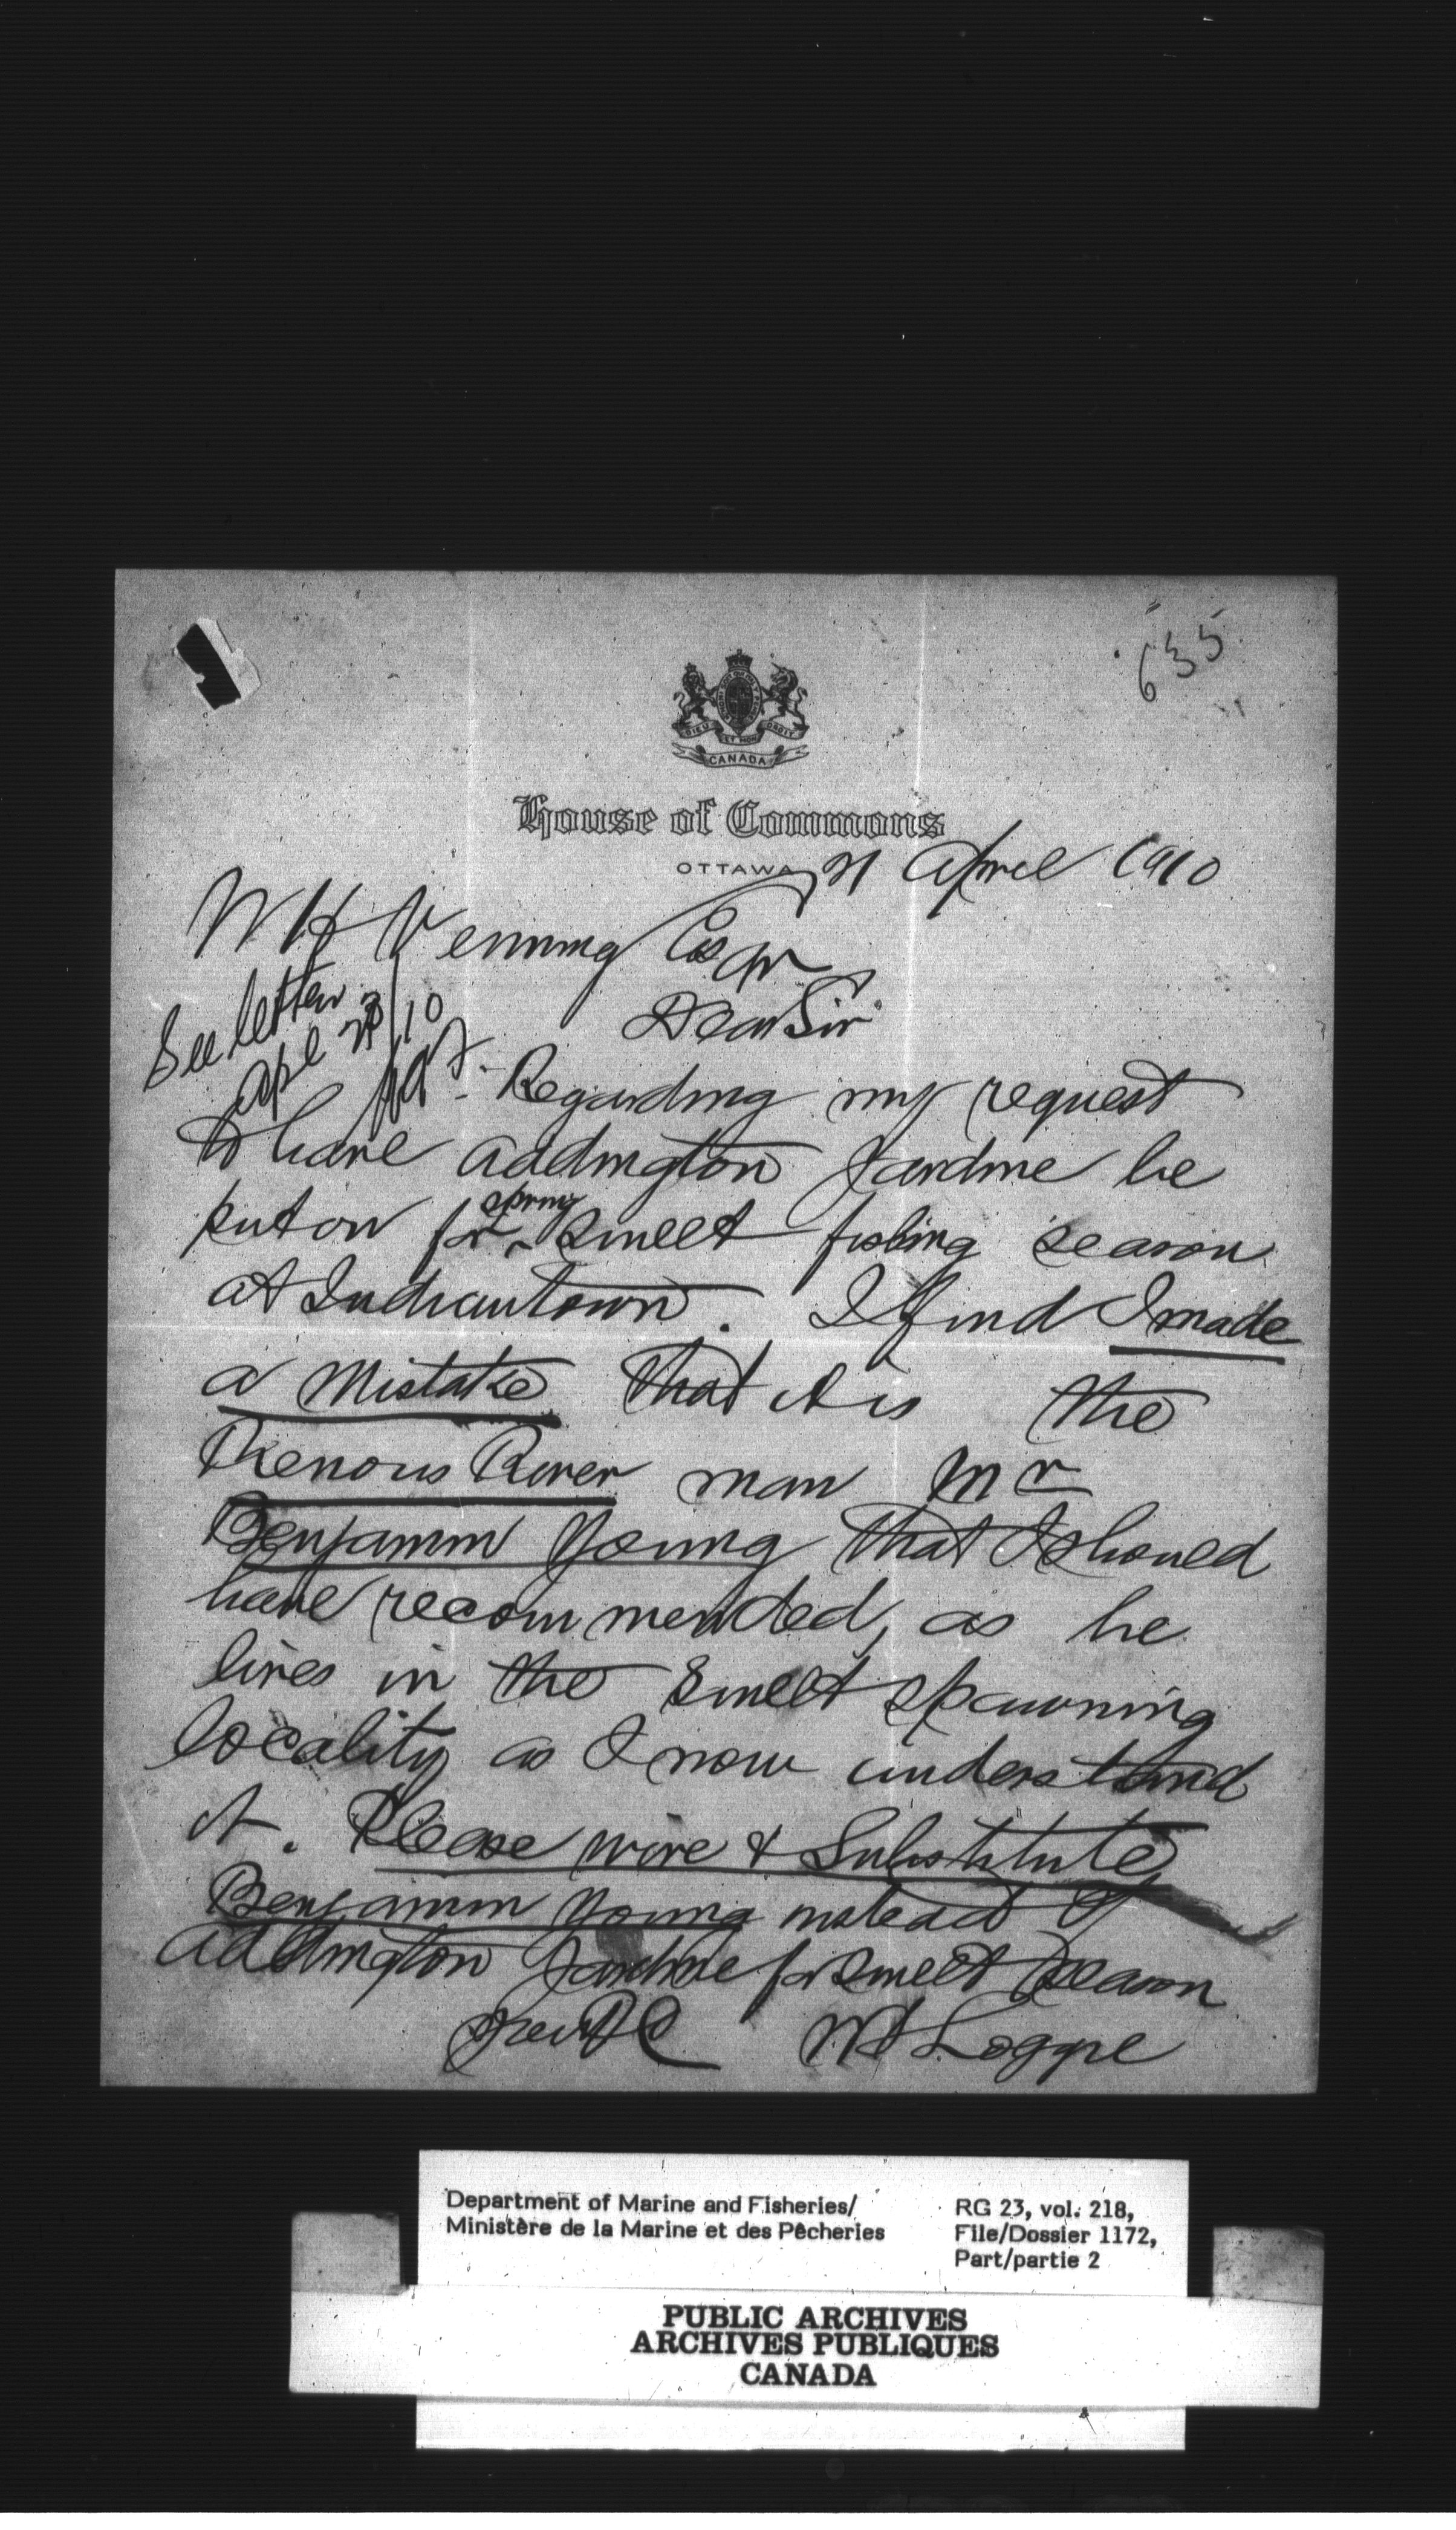 635
DIEU ET MON DROIT
CANADA
House of Commons
OTTAWA, 21 April 1910
W H Venning Esqr
See letter
Apl 23/10
Dear Sir
Regarding my request
to have Addington Jardine be
put on for spring smelt fishing season
at Indiantown. I find I made
a mistake that it is the
Renous River man Mr
Benjamin Young that I should
have recommended, as he
lives in the smelt spawning
locality as I now understand
it. Please wire & Substitute
Benjamin Young instead of
Addington Jardine for smelt season
W S Loggie
Department of Marine and Fisheries/
Ministère de la Marine et des Pêcheries
RG 23, vol. 218,
File/Dossier 1172,
Part/partie 2
PUBLIC ARCHIVES
ARCHIVES PUBLIQUES
CANADA